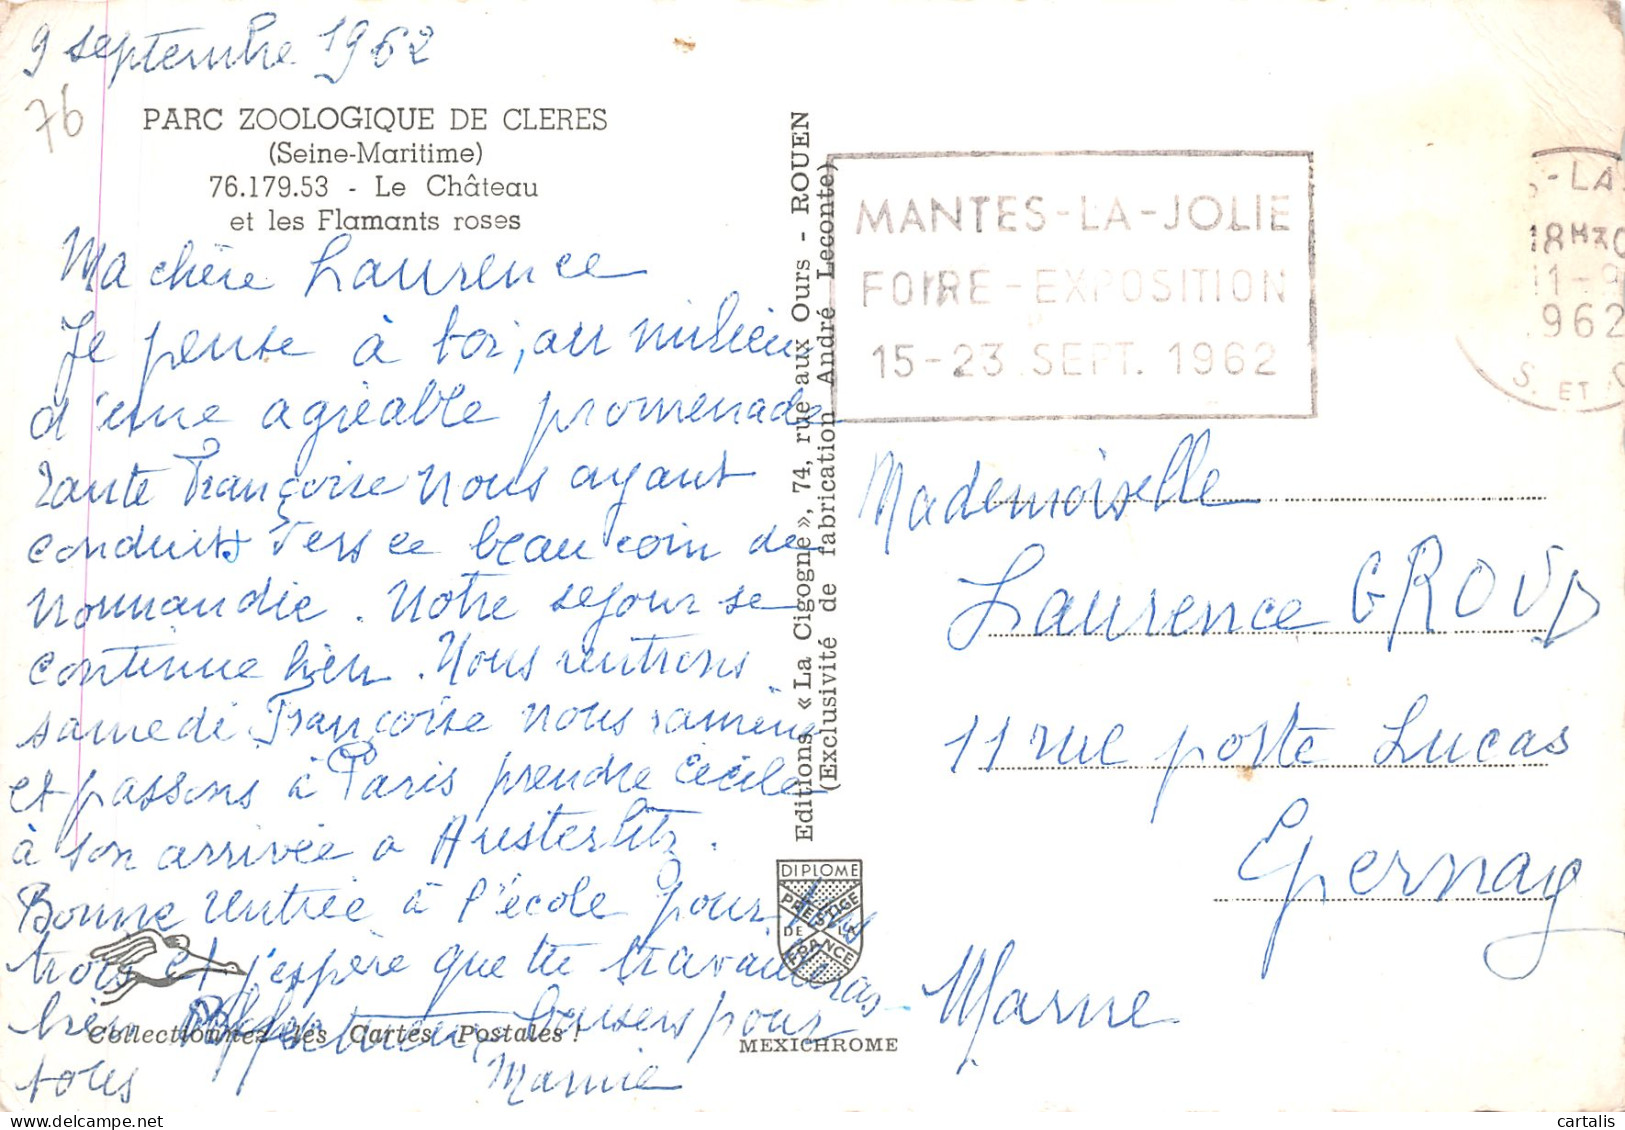 9 septembre 1962
76
PARC ZOOLOGIQUE DE CLERES
(Seine-Maritime)
76.179.53 - Le Château
et les Flamants roses
Ma chère Laurence
Je pense à toi, au milieu
d'une agréable promenade
Tante Françoise nous ayant
conduits vers ce beau coin de
Normandie. Notre sejour se
continue bien. Nous rentrons
samedi Françoise nous ramène
et passons à Paris prendre Cécile
à son arrivée a Austerlitz.
Bonne rentrée à l'école pour
trois et j'espère que tu travailleras
bien baisers pour
tous Mamie
Collectionnez les Cartes Postales !
Editions « La Cigogne », 74, rue aux Ours - ROUEN
(Exclusivité de fabrication André Leconte)
DIPLOME
PRESTIGE
DE LA
FRANCE
MEXICHROME
MANTES-LA-JOLIE
FOIRE-EXPOSITION
15-23 SEPT. 1962
S-LA
18H30
11-9
1962
S. ET O
Mademoiselle
Laurence GROUD
11 rue porte Lucas
Epernay
Marne
cartalis